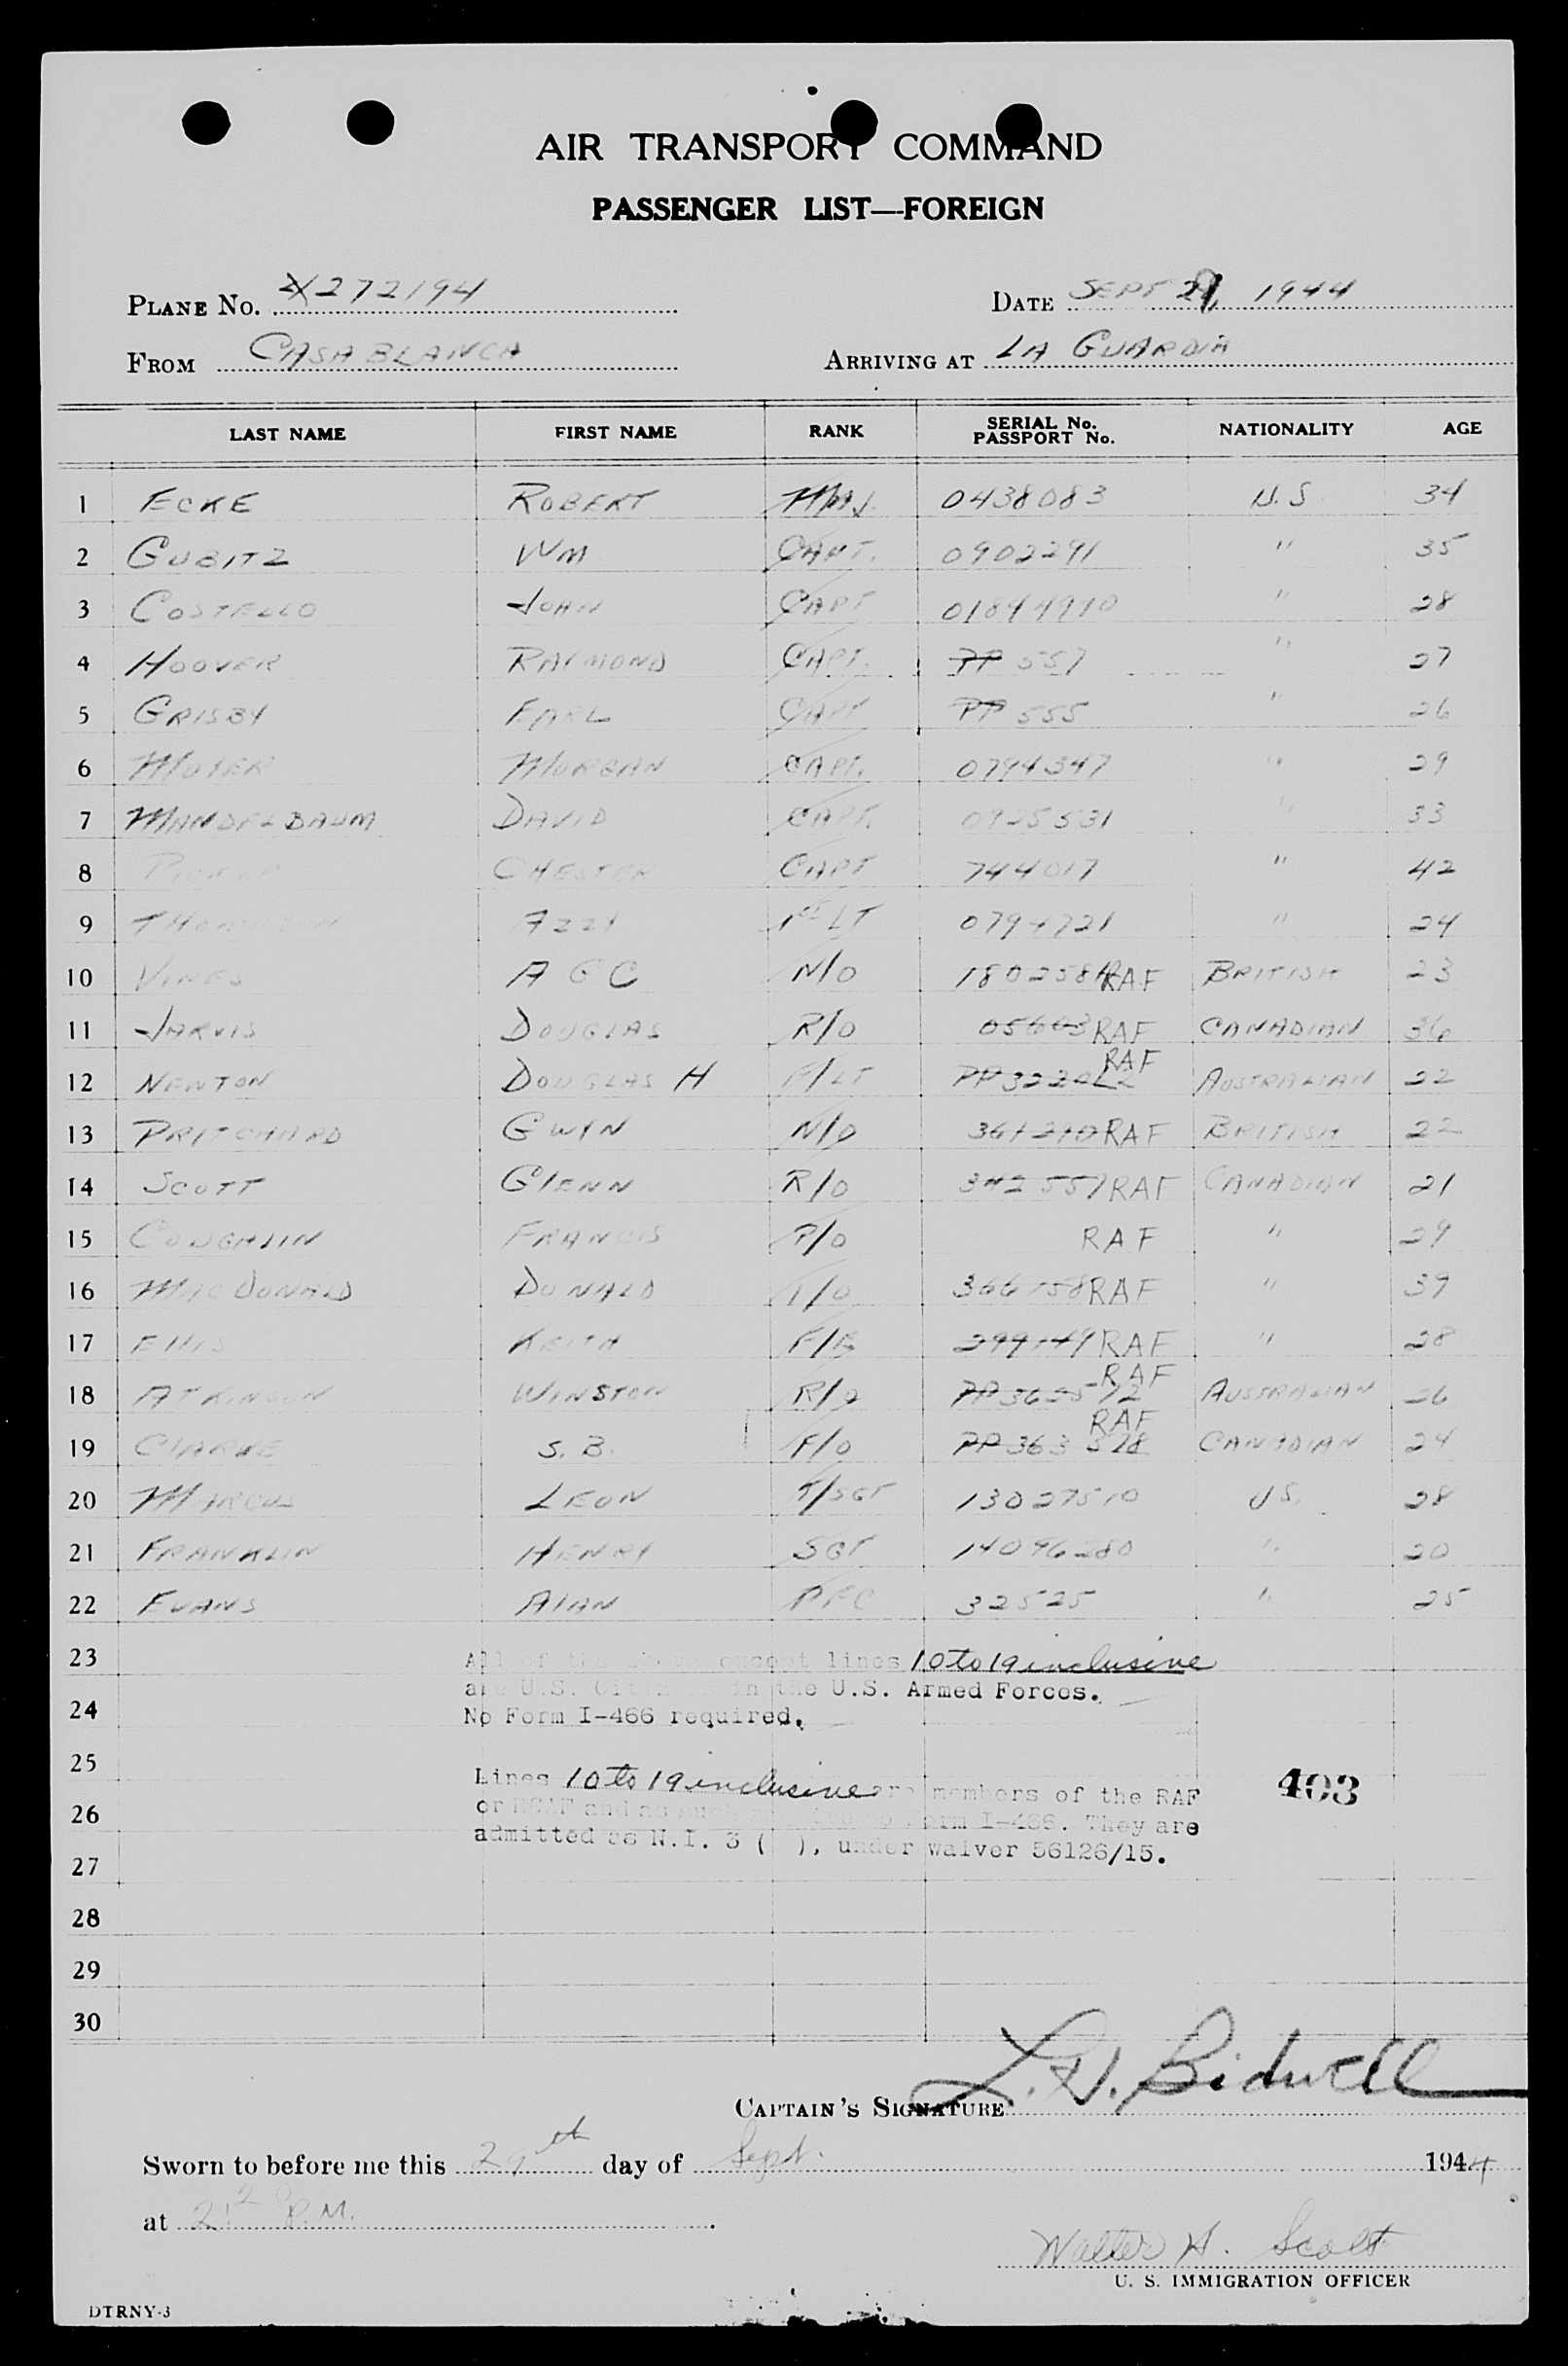 AIR TRANSPORT COMMAND
PASSENGER LIST—FOREIGN
PLANE No. 272194 DATE SEPT 29, 1944
FROM CASABLANCA ARRIVING AT LA GUARDIA
LAST NAME FIRST NAME RANK SERIAL No. PASSPORT No. NATIONALITY AGE
1 ECKE ROBERT MAJ. 0438083 U.S. 34
2 GUBITZ WM CAPT. 0902291 " 35
3 COSTELLO JOHN CAPT " 28
4 HOOVER RAYMOND CAPT. PP 557 " 27
5 GRISBY EARL CAPT PP 555 " 26
6 MOYER MORGAN CAPT. 0794347 " 29
7 MANDELBAUM DAVID CAPT. 0925531 " 33
8 CHESTER CAPT 744017 " 42
9 1ST LT " 24
10 VINES A G C N/O RAF BRITISH 23
11 JARVIS DOUGLAS R/O RAF CANADIAN 36
12 NEWTON DOUGLAS H F/LT RAF AUSTRALIAN 22
13 PRITCHARD GWYN N/O RAF BRITISH 22
14 SCOTT GLENN R/O 342557 RAF CANADIAN 21
15 COUGHLIN FRANCIS RAF " 29
16 MACDONALD DONALD RAF " 39
17 ELLIS KEITH RAF " 28
18 ATKINSON WINSTON R/O RAF AUSTRALIAN 26
19 CLARKE S. B. F/O RAF CANADIAN 24
20 MARCUS LEON T/SGT 13027510 US. 28
21 FRANKLIN HENRY SGT 14096280 " 20
22 EVANS ALAN PFC 32525 " 25
23 All of the above except lines 10 to 19 inclusive
are U.S. Citizens in the U.S. Armed Forces.
24 No Form I-466 required.
25 Lines 10 to 19 inclusive are members of the RAF
26 or RCAF and as such Form I-466. They are
admitted as N.I. 3 ( ), under waiver 56126/15.
403
27
28
29
30
CAPTAIN'S SIGNATURE L. W. Bidwell
Sworn to before me this 29th day of Sept. 1944
at P.M.
Walter H. Scott
U. S. IMMIGRATION OFFICER
DTRNY-3